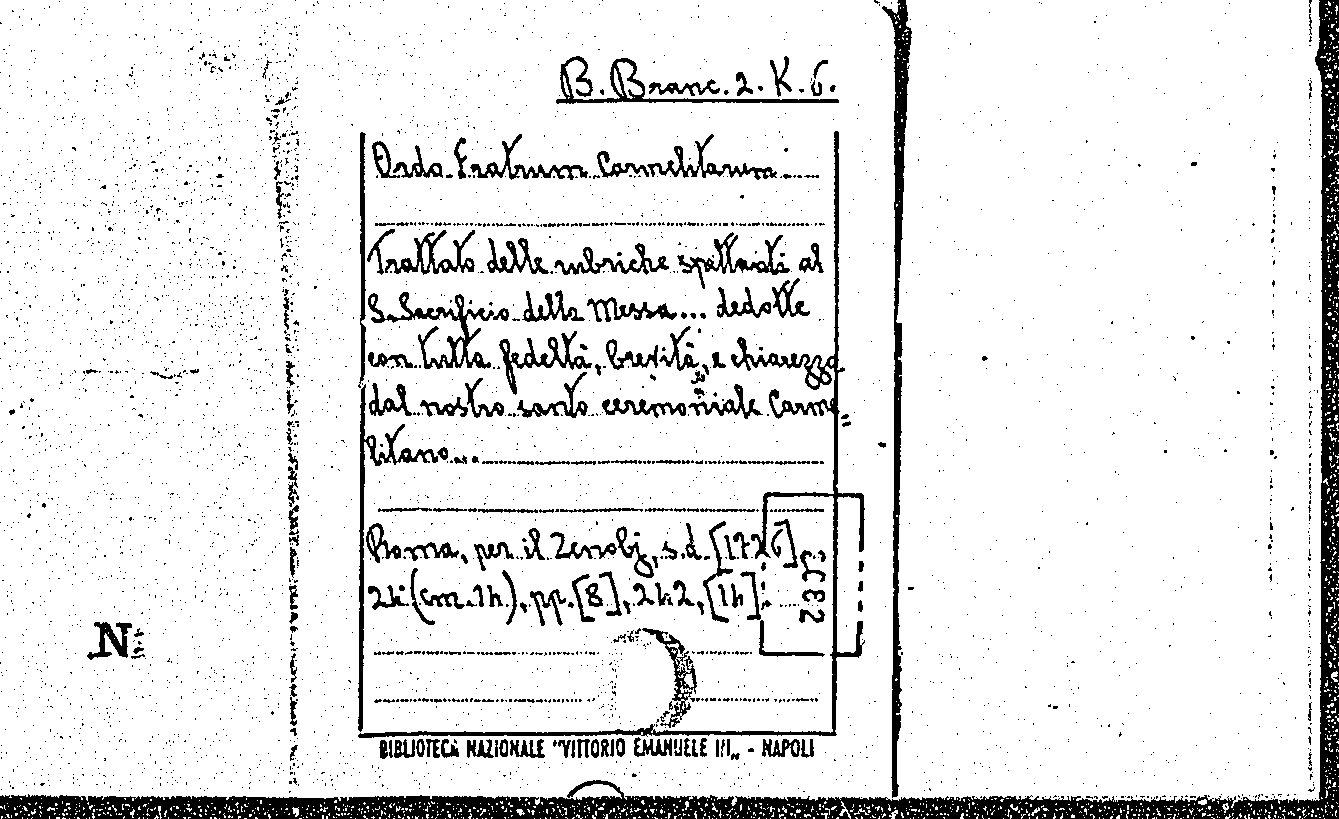 B. Branc. 2. K. 6.
Ordo Fratrum Carmelitarum.
Trattato delle rubriche spettanti al
S. Sacrificio della Messa... dedotte
con tutta fedeltà, brevità, e chiarezza
dal nostro santo ceremoniale Carme„
litano...
Roma, per il Zenobj, s.d. [1726]
24° (cm. 14), pp. [8], 242, [14].
BIBLIOTECA NAZIONALE "VITTORIO EMANUELE III„ - NAPOLI
N